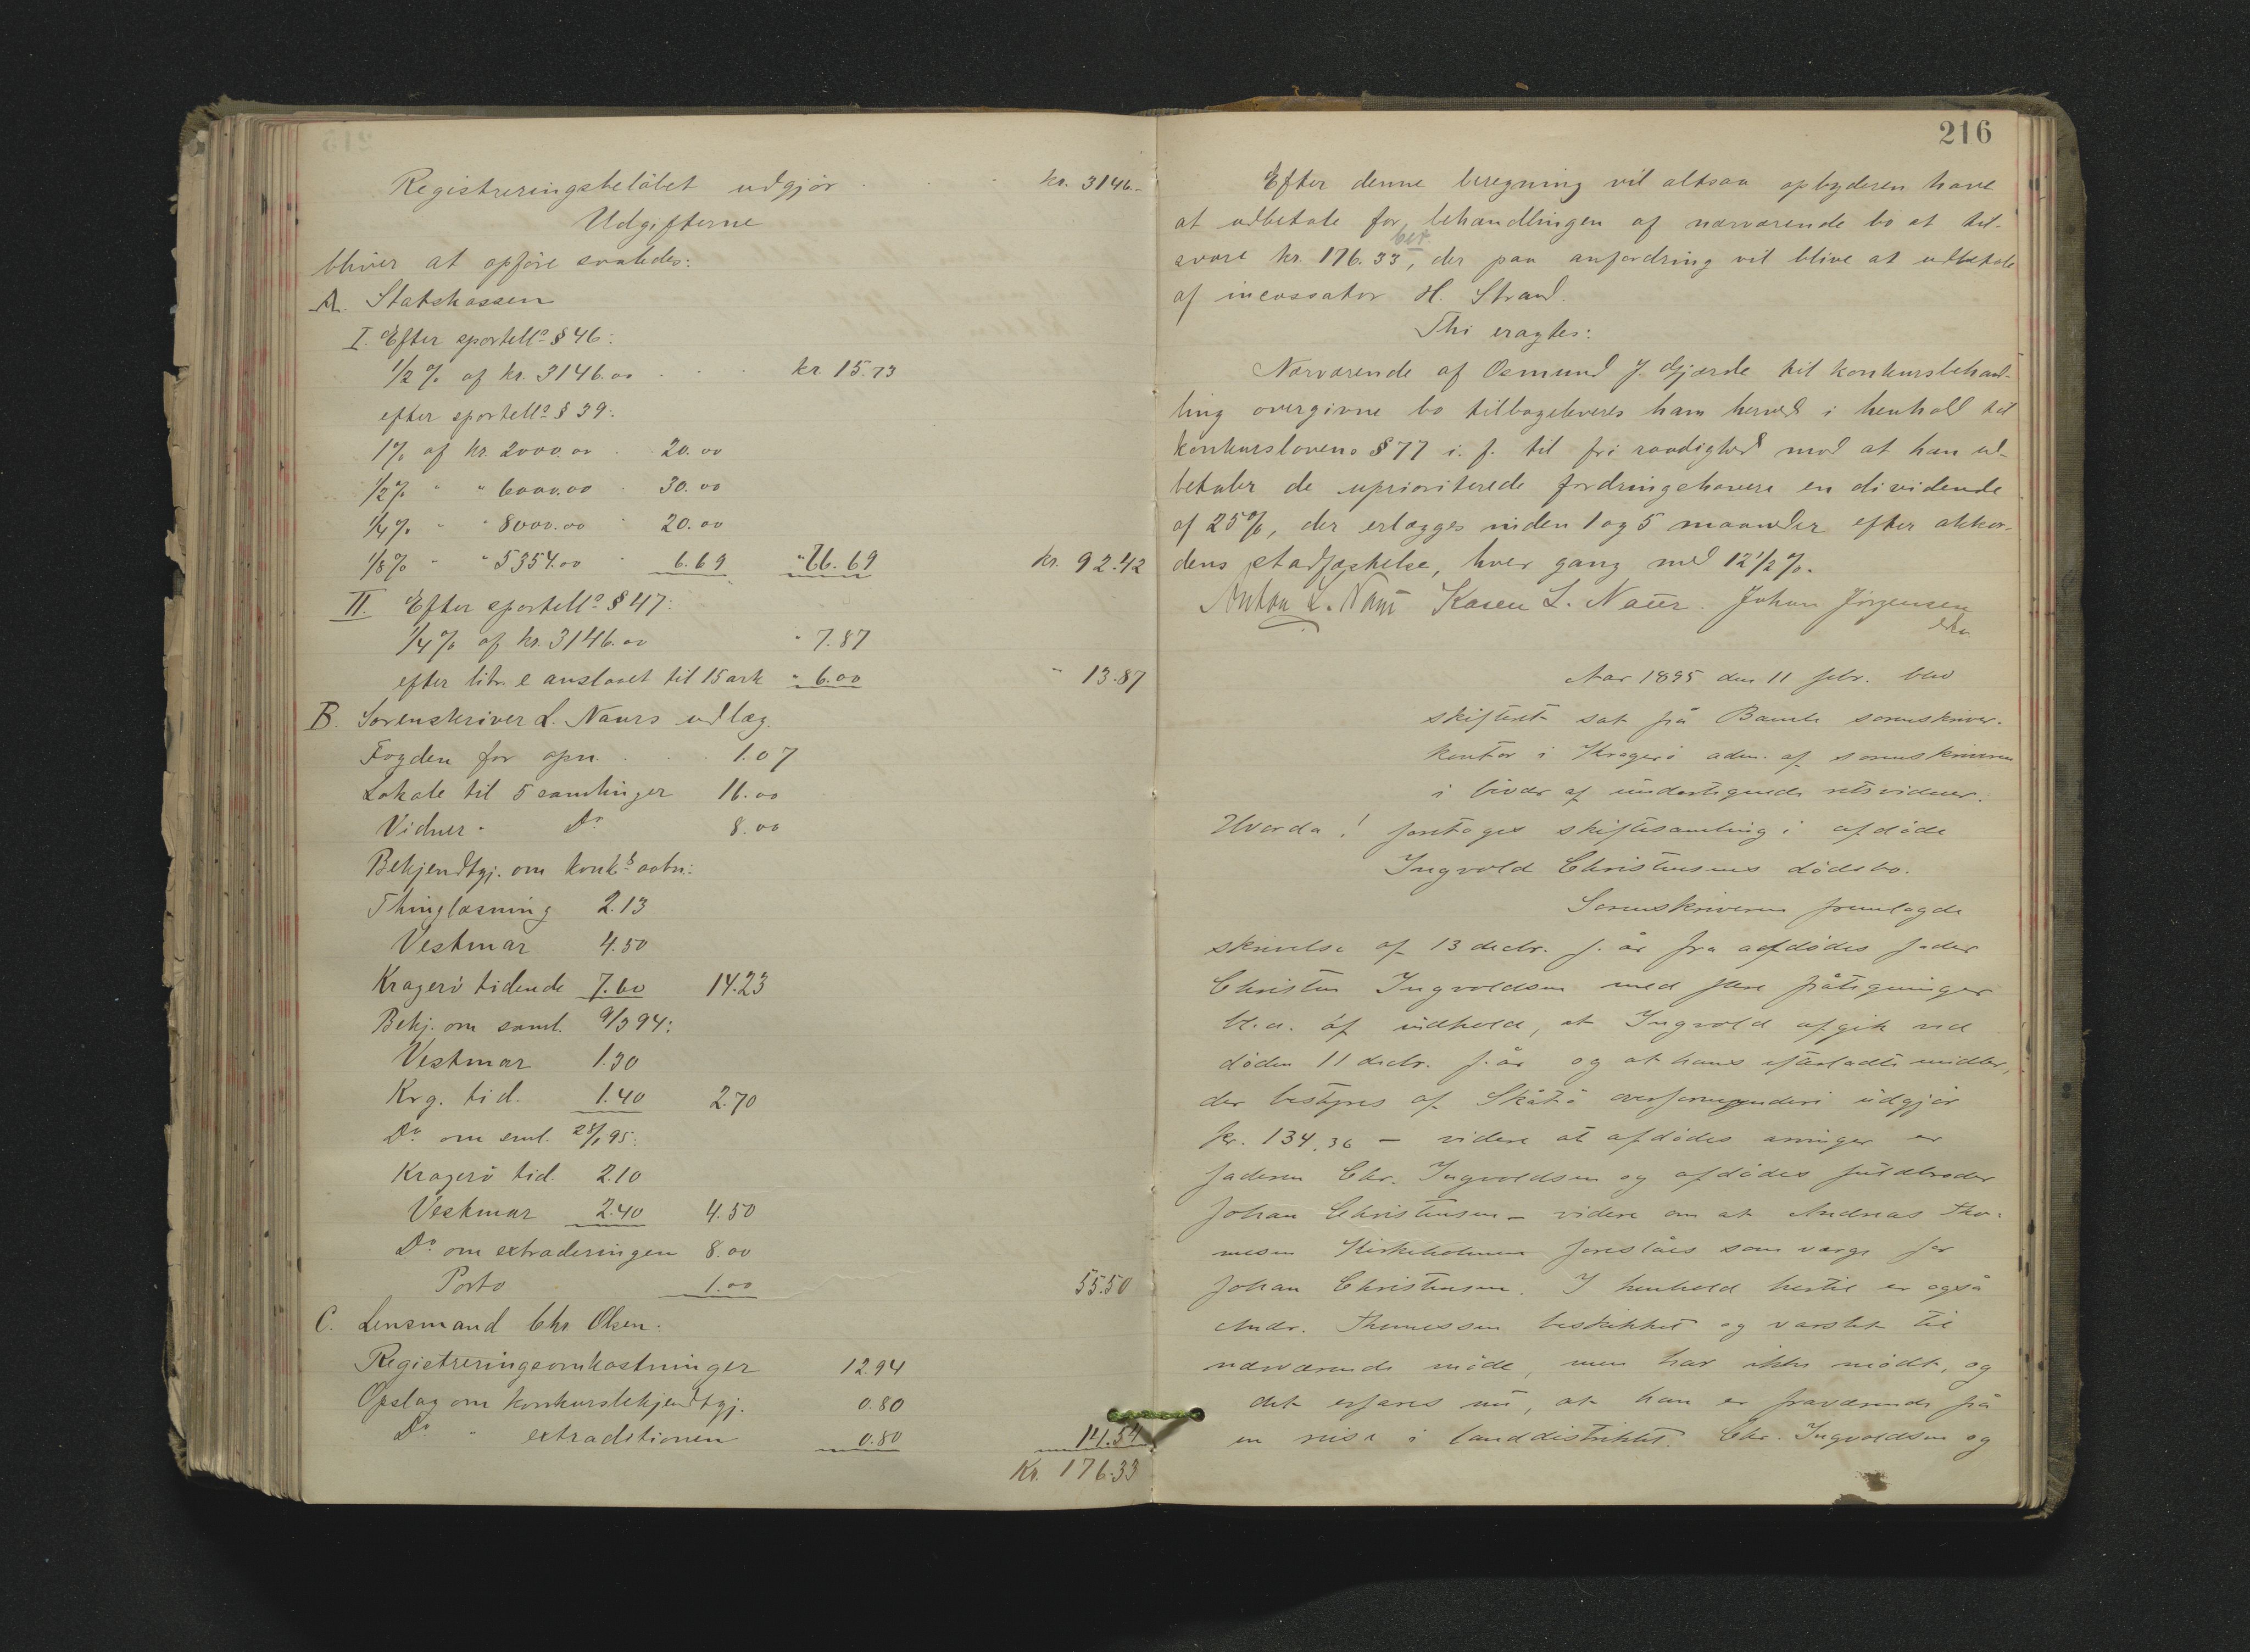 Registreringsbeløbet udgjør . . . kr. 3146.-
Udgifterne
bliver at opføre saaledes:
A. Statskassen
I. Efter sportell° § 46:
1/2 % af kr. 3146.00 . . . kr. 15.73
efter sportell° § 39:
1% af kr. 2000.00 . 20.00
1/2 % " " 6000.00 . 30.00
1/4 % " " 8000.00 " 20.00
1/8 % " " 5354.00 " 6.69 " 76.69 kr. 92.42
II. Efter sportell° § 47:
1/4 % af kr. 3146.00 " 7.87
efter litr. e anslaaet til 15 ark " 6.00 " 13.87
B. Sorenskriver L. Naurs udlæg.
Fogden for opn. . . . 1.07
Lokale til 5 samlinger 16.00
Vidner " D° 8.00
Bekjendtgj. om konk^s aabn:
Thinglæsning 2.13
Vestmar 4.50
Kragerø tidende 7.60 14.23
Bekj. om saml. 9/3 94:
Vestmar 1.30
Krg. tid. 1.40 2.70
D° om saml. 28/1 95:
Kragerø tid. 2.10
Vestmar 2.40 4.50
D° om extraderingen 8.00
Porto 1.00 55.50
C. Lensmand Chr. Olsen.
Registreringsomkostninger 12.94
Opslag om konkursbekjendtgj. 0.80
D° " extraditionen 0.80 14.54
Kr. 176.33
216
Efter denne beregning vil altsaa opbyderen have
at udbetale for behandlingen af nærværende bo at til-
svare kr. 176.33, der paa anfordring vil blive at udbetale
bet
af incassator H. Strand.
Thi eragtes:
Nærværende af Osmund J. Gjærde til konkursbehand-
ling overgivne bo tilbageleveres ham herved i henhold til
konkurslovens § 77 i. f. til fri raadighed mod at han ud-
betaler de uprioriterede fordringshavere en dividende
af 25%, der erlægges inden 1 og 5 maaneder efter akkor-
dens stadfæstelse, hver gang med 12 1/2 %.
Anton L. Naur Karen L. Naur. Johan Jørgensen
Aar 1895 den 11 febr. blev
skifteret sat på Bamle sorenskriver-
kontor i Kragerø adm. af sorenskriveren
i bivær af undertegnede retsvidner.
Hvorda! foretoges skiftesamling i afdøde
Ingvold Christensens dødsbo.
Sorenskriveren fremlagde
skrivelse af 13 decbr. f. år fra afdødes fader
Christen Ingvoldsen med flere påtegninger
bl.a. af indhold, at Ingvold afgik ved
døden 11 decbr. f. år og at hans efterladte midler,
der bestyres af Skåtø overformynderi udgjør
kr. 134,36 – videre at afdødes arvinger er
faderen Chr. Ingvoldsen og afdødes fuldbroder
Johan Christensen – videre om at Andreas Tho-
mesen Kirkeholmen foreslåes som værge for
Johan Christensen. I henhold hertil er også
Andr. Thomessen beskikket og varslet til
nærværende møde, men har ikke mødt, og
det erfares nu, at han er fraværende på
en reise i landdistriktet. Chr. Ingvoldsen og